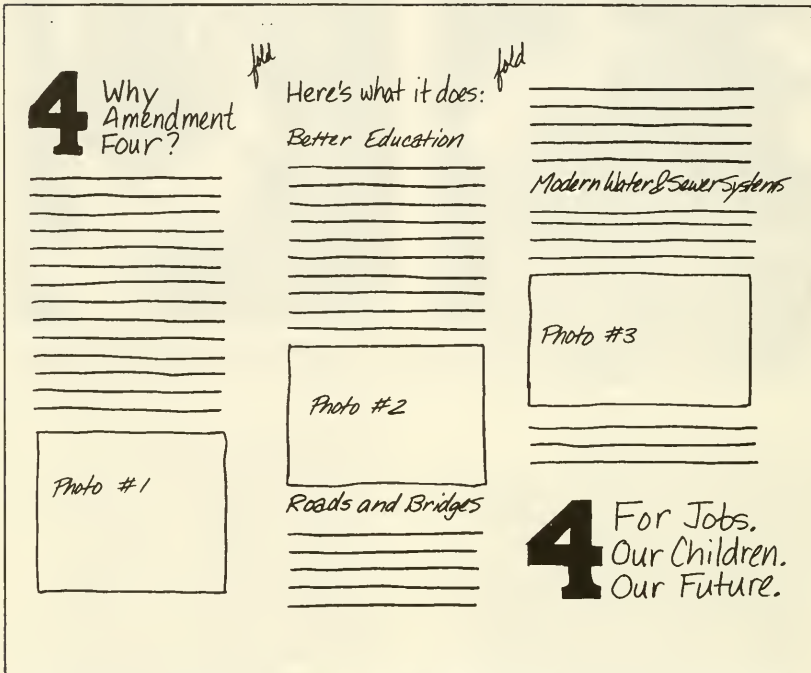 4 Why
Amendment
Four?
Photo #1
fold
Here's what it does:
Better Education
Photo #2
Roads and Bridges
fold
Modern Water & Sewer Systems
Photo #3
4 For Jobs.
Our Children.
Our Future.